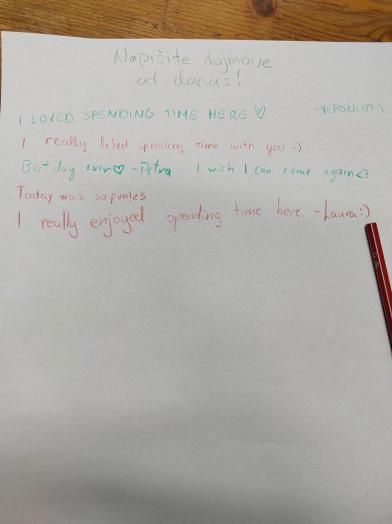 Napišite dojmove
od danas!
I LOVED SPENDING TIME HERE ♡ -VERONIKA :)
I really liked spending time with you :)
Best day ever♡ -Petra I wish I can come again<3
Today was so fun!<3
I really enjoyed spending time here. -Laura:)